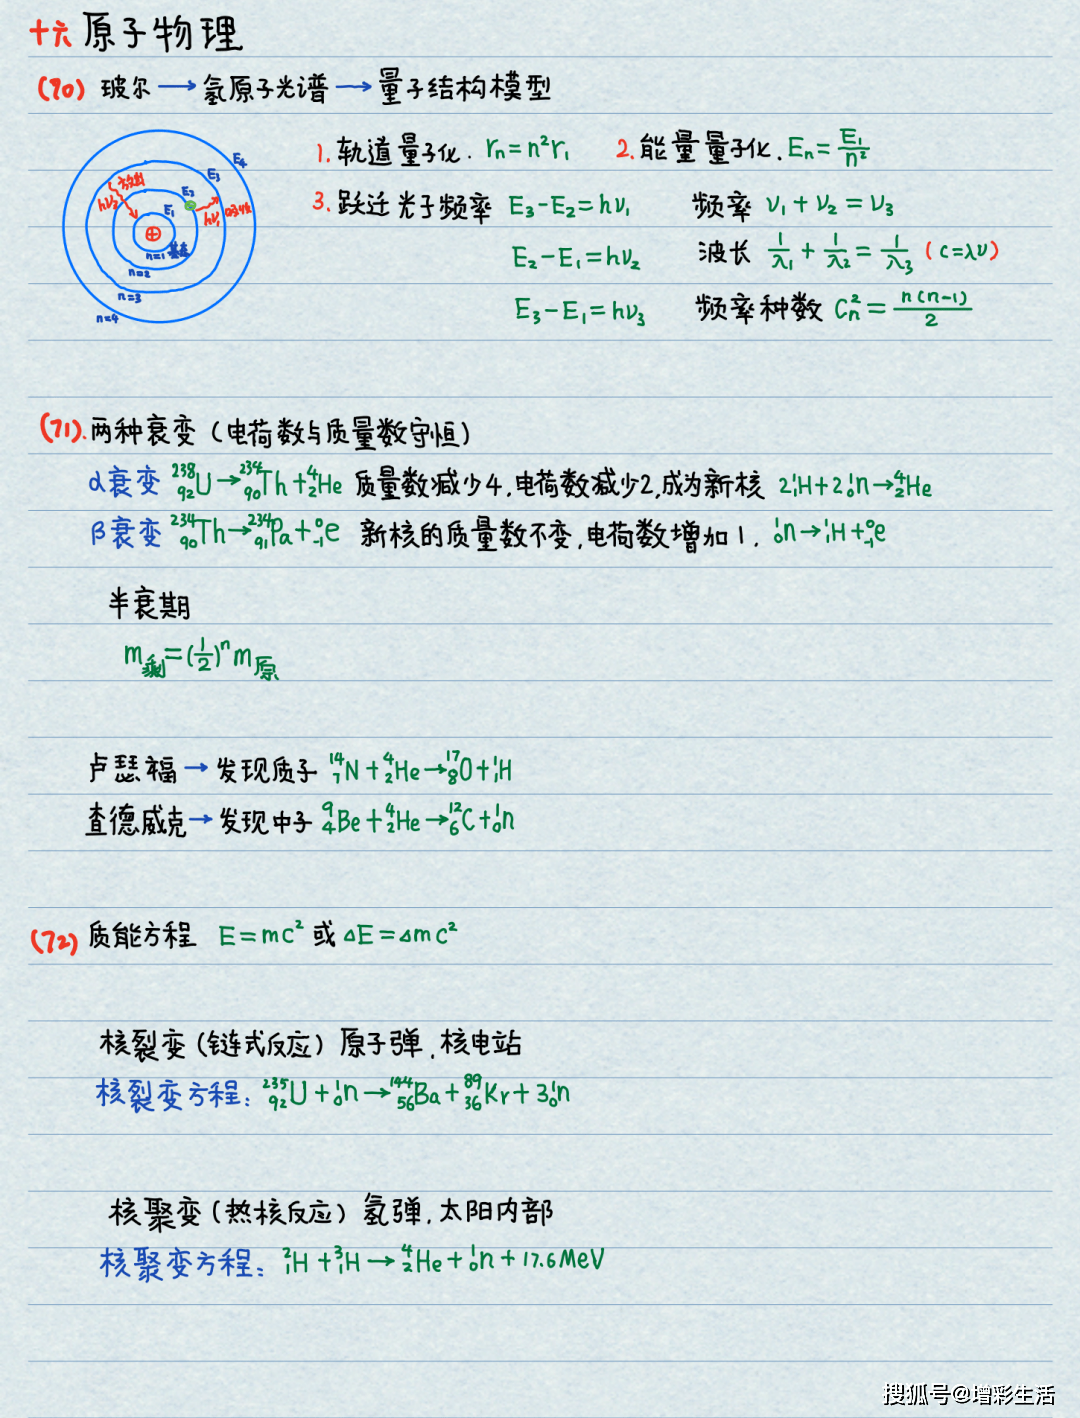 十六 原子物理
(70) 玻尔 → 氢原子光谱 → 量子结构模型
1. 轨道量子化. rₙ=n²r₁ 2. 能量量子化. Eₙ=E₁/n²
3. 跃迁光子频率 E₃-E₂=hν₁ 频率 ν₁+ν₂=ν₃
E₂-E₁=hν₂ 波长 1/λ₁+1/λ₂=1/λ₃ (c=λν)
E₃-E₁=hν₃ 频率种数 Cₙ²=n(n-1)/2
E₄
E₃
E₂
E₁
放出
hν₂
hν₁ 吸收
n=1 基态
n=2
n=3
n=4
(71). 两种衰变 (电荷数与质量数守恒)
α衰变 ²³⁸₉₂U→²³⁴₉₀Th+⁴₂He 质量数减少4,电荷数减少2,成为新核 2¹₁H+2¹₀n→⁴₂He
β衰变 ²³⁴₉₀Th→²³⁴₉₁Pa+⁰₋₁e 新核的质量数不变,电荷数增加1. ¹₀n→¹₁H+⁰₋₁e
半衰期
m剩=(1/2)ⁿm原
卢瑟福→发现质子 ¹⁴₇N+⁴₂He→¹⁷₈O+¹₁H
查德威克→发现中子 ⁹₄Be+⁴₂He→¹²₆C+¹₀n
(72) 质能方程 E=mc² 或 △E=△mc²
核裂变 (链式反应) 原子弹.核电站
核裂变方程: ²³⁵₉₂U+¹₀n→¹⁴⁴₅₆Ba+⁸⁹₃₆Kr+3¹₀n
核聚变 (热核反应) 氢弹.太阳内部
核聚变方程: ²₁H+³₁H→⁴₂He+¹₀n+17.6MeV
搜狐号@增彩生活